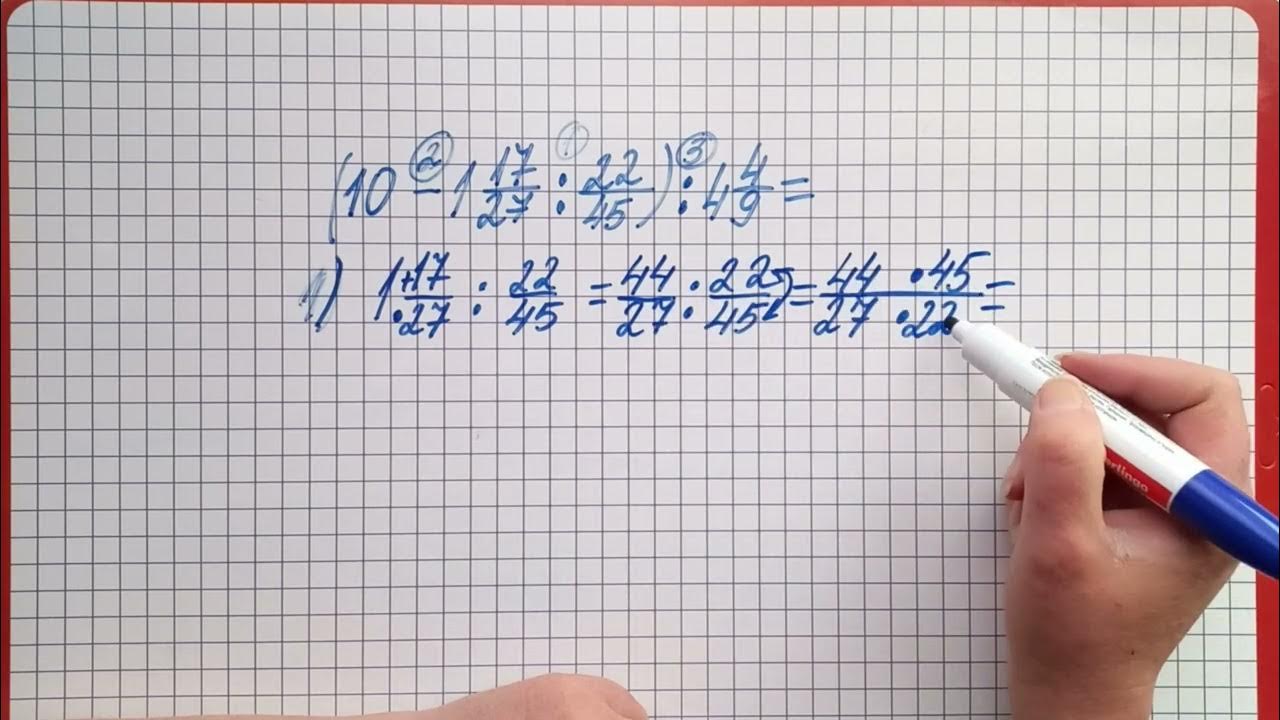 (10 - 1 17/27 : 22/45) : 4 4/9 =
1) 1 17/27 : 22/45 = 44/27 : 22/45 = 44 · 45 / 27 · 22 =